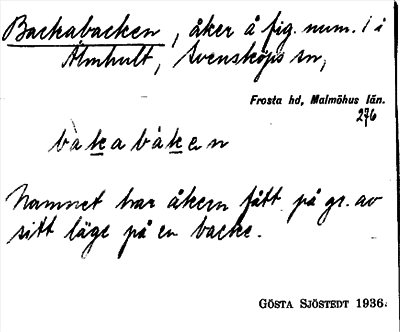 Backabacken, åker å fig. num. 1 i
Älmhult, Svensköps sn,
Frosta hd, Malmöhus län.
276
bàkabàken
Namnet har åkern fått på gr. av
sitt läge på en backe.
GÖSTA SJÖSTEDT 1936.